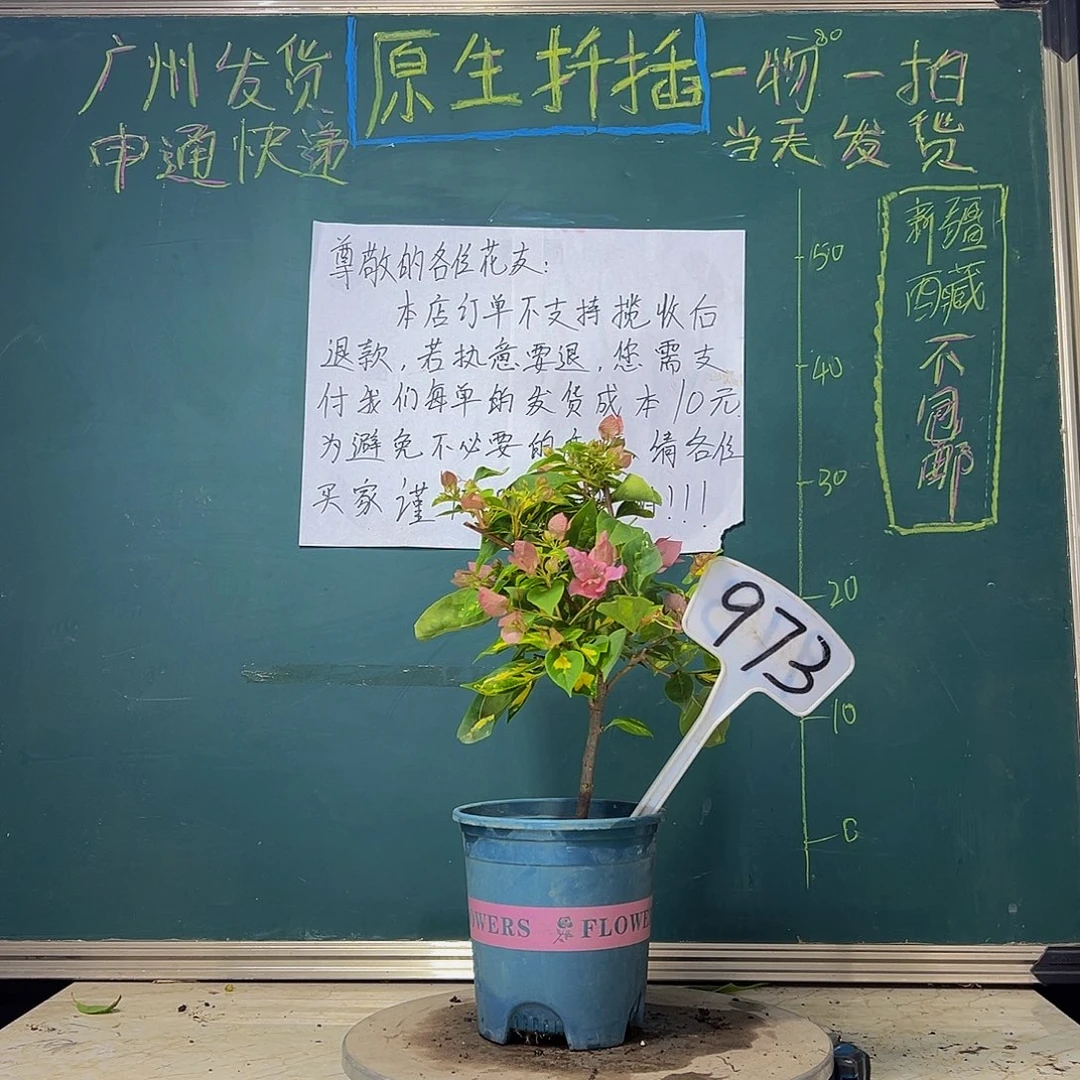 广州发货
申通快递
原生扦插
一物一拍
当天发货
新疆
西藏
不包邮
尊敬的各位花友:
本店订单不支持揽收后
退款,若执意要退,您需支
付我们每单的发货成本10元
为避免不必要的 请各位
买家谨 !!!
50
40
30
20
10
0
973
OWERS FLOWE